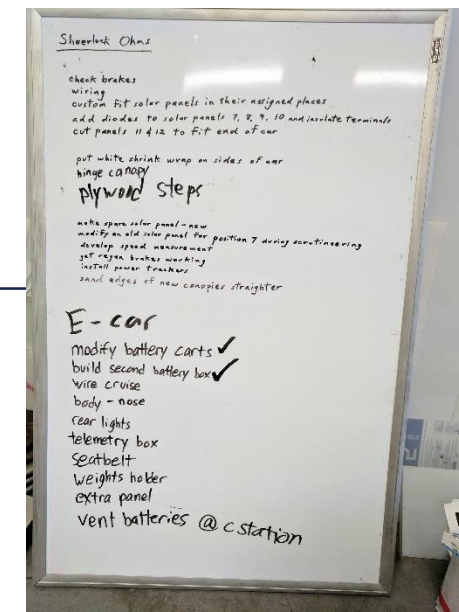 Sheerluck Ohms
check brakes
wiring
custom fit solar panels in their assigned places
add diodes to solar panels 7, 8, 9, 10 and insulate terminals
cut panels 11 & 12 to fit end of car
put white shrink wrap on sides of car
hinge canopy
plywood steps
make spare solar panel - new
modify an old solar panel for position 7 during scrutineering
develop speed measurement
get regen brakes working
install power trackers
sand edges of new canopies straighter
E-car
modify battery carts ✓
build second battery box ✓
wire cruise
body - nose
rear lights
telemetry box
seatbelt
weights holder
extra panel
vent batteries @ c station